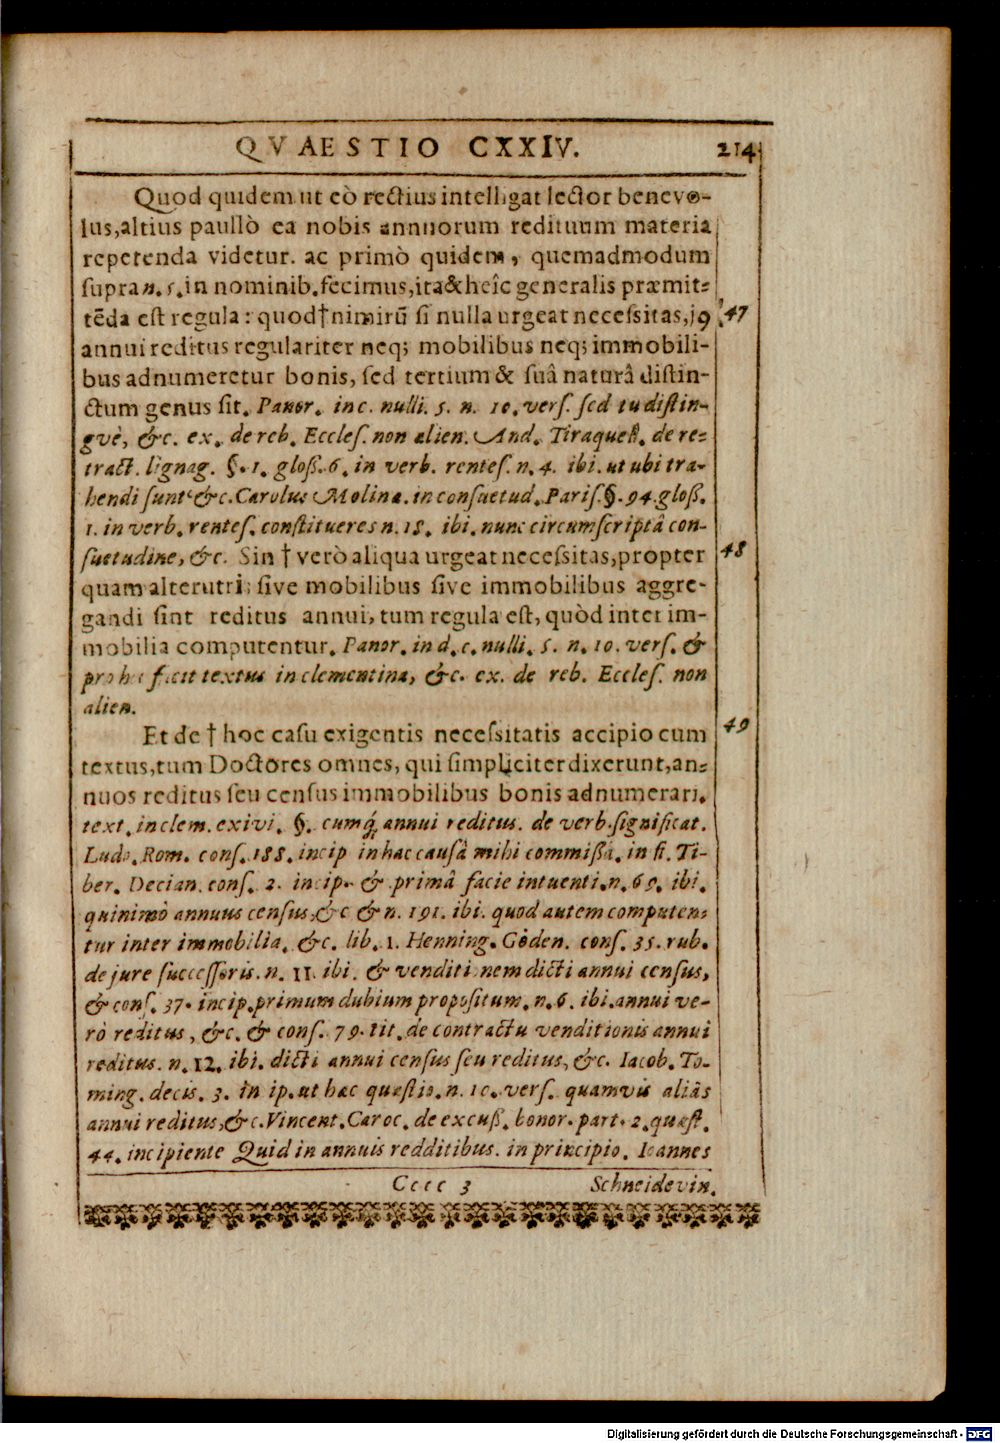 QVAESTIO CXXIV. 214
Quod quidem ut eò rectius intelligat lector benevo-
lus, altius paullò ea nobis annuorum redituum materia
repetenda videtur. ac primò quidem, quemadmodum
supra n. 5. in nominib. fecimus, ita & heîc generalis præmit-
tẽda est regula: quod † nimirũ si nulla urgeat necessitas, 47
annui reditus regulariter neq; mobilibus neq; immobili-
bus adnumeretur bonis, sed tertium & suâ naturâ distin-
ctum genus sit. Panor. in c. nulli. 5. n. 10. vers. sed tu distin-
gvè, &c. ex. de reb. Eccles. non alien. And. Tiraquell. de re-
tract. lignag. §. 1. gloß. 6. in verb. rentes. n. 4. ibi. ut ubi tra-
hendi sunt &c. Carolus Molina. in consuetud. Paris. §. 94. gloß.
1. in verb. rentes. constitueres n. 18. ibi. nunc circumscriptâ con-
suetudine, &c. Sin † verò aliqua urgeat necessitas, propter 48
quam alterutri; sive mobilibus sive immobilibus aggre-
gandi sint reditus annui, tum regula est, quòd inter im-
mobilia computentur. Panor. in d. c. nulli. 5. n. 10. vers. &
pro hac facit textus in clementina, &c. ex. de reb. Eccles. non
alien.
Et de † hoc casu exigentis necessitatis accipio cum 49
textus, tum Doctores omnes, qui simpliciter dixerunt, an-
nuos reditus seu census immobilibus bonis adnumerari.
text. in clem. exivi. §. cumq́ annui reditus. de verb. significat.
Ludo. Rom. cons. 188. incip in hac causâ mihi commißâ. in fi. Ti-
ber. Decian. cons. 2. incip. & primâ facie intuenti. n. 69. ibi.
quinimò annuus census, &c & n. 191. ibi. quod autem computen-
tur inter immobilia. &c. lib. 1. Henning. Göden. cons. 35. rub.
de jure successoris. n. 11 ibi. & venditionem dicti annui census,
& cons. 37. incip. primum dubium propositum. n. 6. ibi. annui ve-
rò reditus, &c. & cons. 79. tit. de contractu venditionis annui
reditus. n. 12. ibi. dicti annui census seu reditus, &c. Iacob. To-
ming. decis. 3. in ip. ut hac quæstio. n. 10. vers. quamvis aliàs
annui reditus, &c. Vincent. Caroc. de excuß. bonor. part. 2. quæst.
44. incipiente Quid in annuis redditibus. in principio. Ioannes
Cccc 3 Schneidevin.
Digitalisierung gefördert durch die Deutsche Forschungsgemeinschaft - DFG